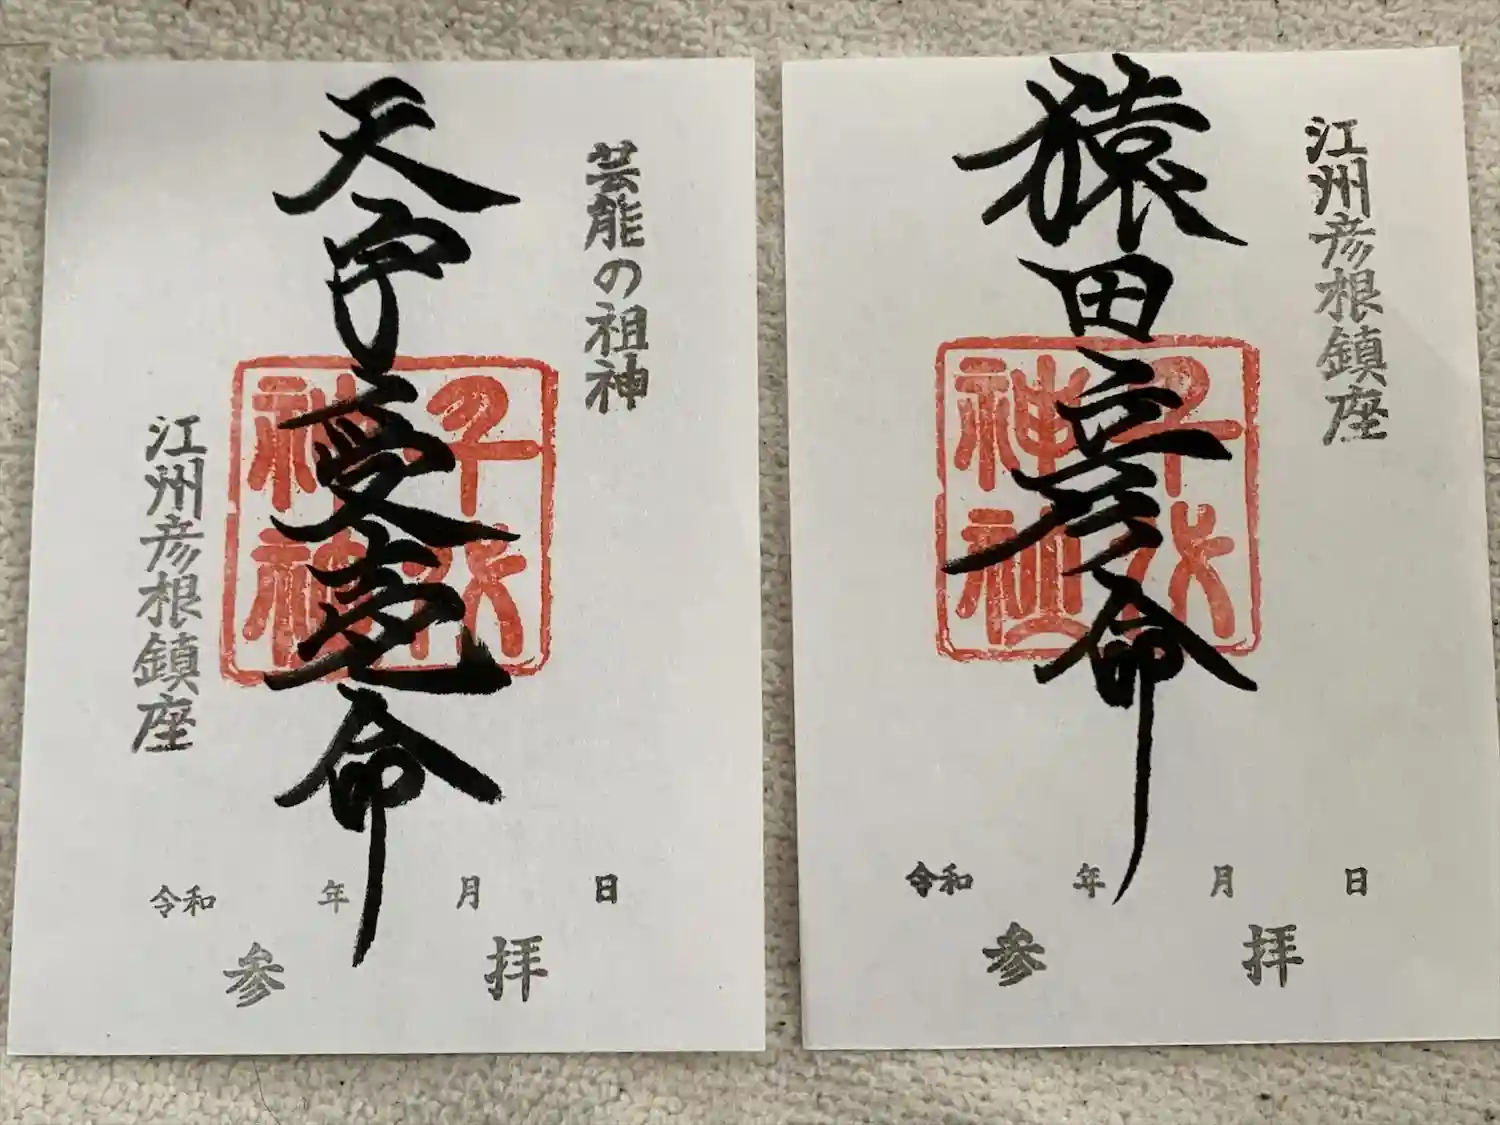 芸能の祖神
天宇受売命
江州彦根鎮座
千代
神社
令和 年 月 日
参拝
江州彦根鎮座
猿田彦命
千代
神社
令和 年 月 日
参拝